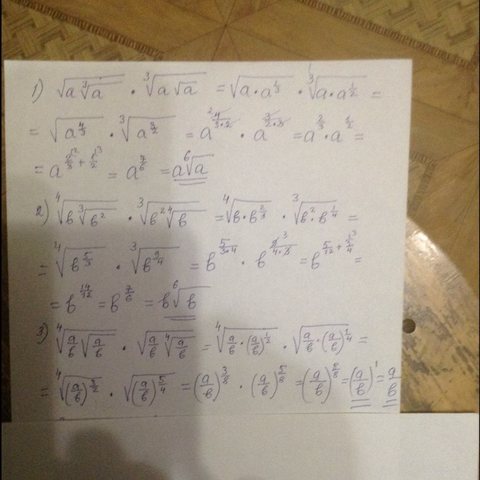 1) √(a∛a) · ∛(a√a) = √(a·a^(1/3)) · ∛(a·a^(1/2)) =
= √(a^(4/3)) · ∛(a^(3/2)) = a^(4/(3·2)) · a^(3/(2·3)) = a^(2/3) · a^(1/2) =
= a^(2/3 + 1/2) = a^(7/6) = a⁶√a
2) ⁴√(b∛(b²)) · ∛(b²⁴√b) = ⁴√(b·b^(2/3)) · ∛(b²·b^(1/4)) =
= ⁴√(b^(5/3)) · ∛(b^(9/4)) = b^(5/(3·4)) · b^(9/(4·3)) = b^(5/12 + 3/4) =
= b^(14/12) = b^(7/6) = b⁶√b
3) ⁴√(a/b √(a/b)) · √(a/b ⁴√(a/b)) = ⁴√(a/b · (a/b)^(1/2)) · √(a/b · (a/b)^(1/4)) =
= ⁴√((a/b)^(3/2)) · √((a/b)^(5/4)) = (a/b)^(3/8) · (a/b)^(5/8) = (a/b)^(8/8) = (a/b)¹ = a/b